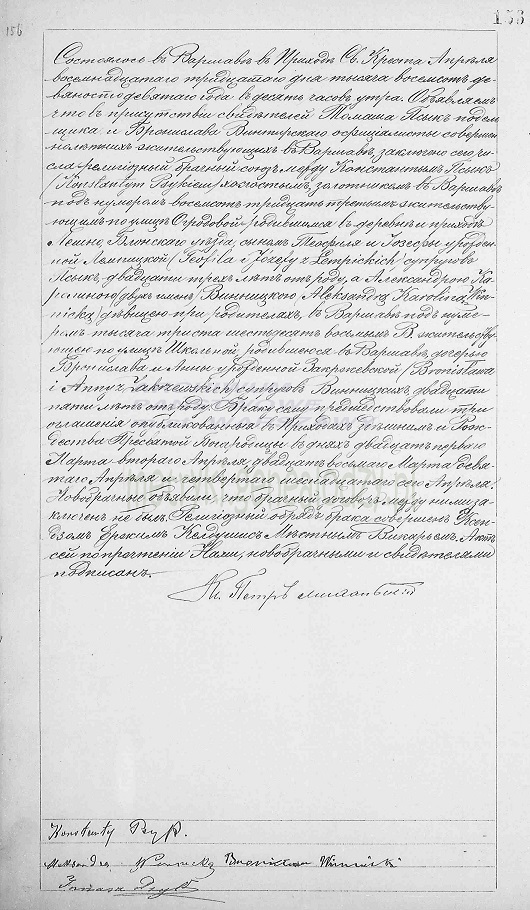 156
153
Состоялось въ Варшавѣ въ Приходѣ Св. Креста Апрѣля
восемнадцатаго тридцатаго дня тысяча восемсотъ де-
вяносто девятаго года въ десять часовъ утра. Объявляемъ
что въ присутствіи свидѣтелей Томаша Псыкъ
и Бронислава Винницкаго оффиціалисты совершен-
нолѣтнихъ жительствующихъ въ Варшавѣ, заключено сего чи-
сла религіозный брачный союзъ между Константымъ Псыкъ
(Konstantym Psykiem) холостымъ, золотникомъ въ Варшавѣ
подъ нумеромъ восемсотъ тридцать третьимъ жительству-
ющимъ по улицѣ Огродовой родившимся въ деревнѣ и приходѣ
Лешно, Блонскаго уѣзда, сыномъ Теофиля и Іозефы урожден-
ной Лемпицкой (Teofila i Józefy z Lempickich) супруговъ
Псыкъ, двадцати трехъ лѣтъ отъ роду, а Александрою Ка-
ролиною двухъ именъ Винницкою, (Aleksandrą Karoliną Win-
nicką) дѣвицею при родителяхъ, въ Варшавѣ подъ нуме-
ромъ тысяча триста шестьдесятъ восьмымъ В. жительству-
ющею по улицѣ Школьной, родившеюся въ Варшавѣ, дочерью
Бронислава и Анны урожденной Закржевской (Bronisława
i Anny z Zakrzewskich) супруговъ Винницкихъ, двадцати
пяти лѣтъ отъ роду. Браку сему предшествовали три
оглашенія опубликованныя въ Приходахъ здѣшнимъ и Рож-
дества Пресвятой Богородицы въ дняхъ двадцать перваго
Марта второго Апрѣля, двадцать восьмаго Марта девя-
таго Апрѣля и четвертаго шестнадцатаго сего Апрѣля.
Новобрачные объявили, что брачный договоръ между ними за-
ключенъ не былъ. Религіозный обрядъ брака совершенъ Ксен-
дзомъ Мѣстнымъ Викаріемъ. Актъ
сей по прочтеніи Нами, новобрачными и свидѣтелями
подписанъ.
Кс. Петръ
Konstanty Psyk.
Winnicka Winnicki
Tomasz Psyk